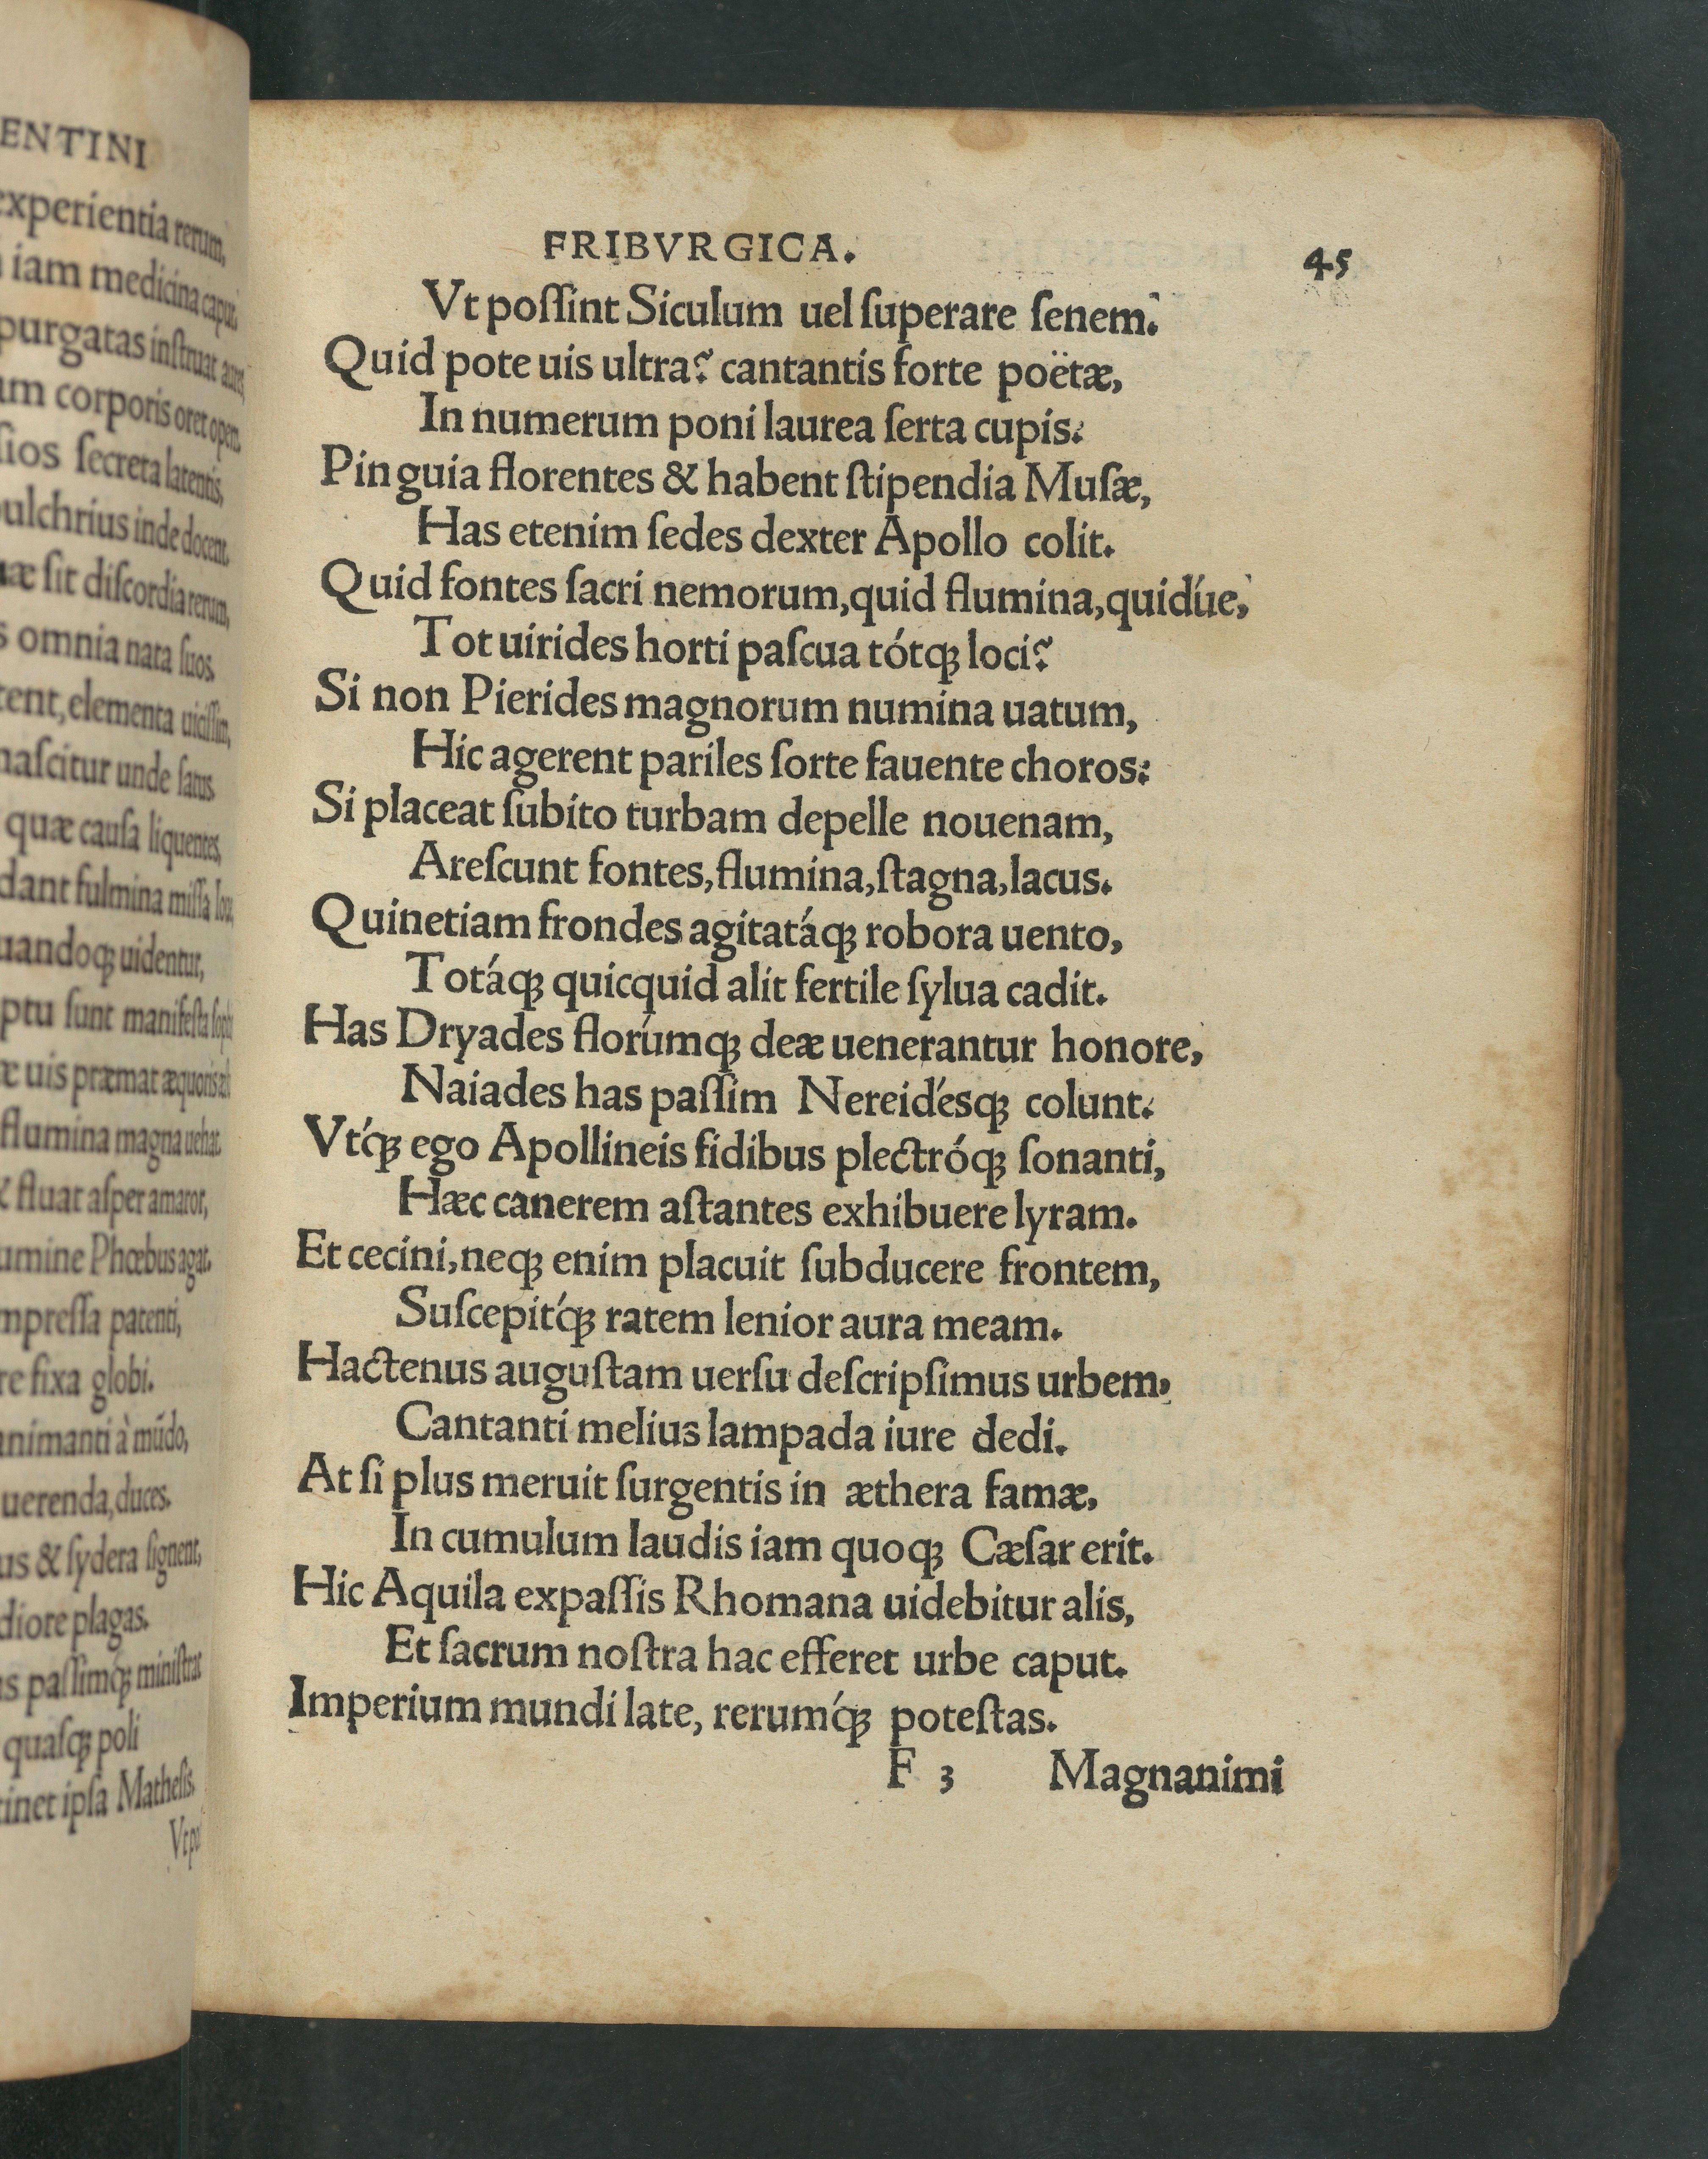 ENTINI
experientia rerum,
iam medicina caput
purgatas instruat aures
um corporis oret opem.
sios secreta latentis,
pulchrius inde docent.
uæ sit discordia rerum,
s omnia nata suos.
tent, elementa uicissim,
nascitur unde satus.
quæ causa liquentes,
dant fulmina missa
uandoq́ uidentur,
ptu sunt manifesta
æ uis præmat æquoris
flumina magna uehat.
& fluat asper amaror,
umine Phœbus agat.
mpressa patenti,
re fixa globi.
animanti à mūdo,
uerenda, duces.
us & sydera signent,
diore plagas.
as passimq́; ministrat
quasq; poli
tinet ipsa Mathesis.
Vt po
FRIBVRGICA.
45
Vt poſſint Siculum uel ſuperare ſenem.
Quid pote uis ultra? cantantis forte poëtæ,
In numerum poni laurea ſerta cupis:
Pinguia florentes & habent ſtipendia Muſæ,
Has etenim ſedes dexter Apollo colit.
Quid fontes ſacri nemorum, quid flumina, quidúe,
Tot uirides horti paſcua tótq; loci?
Si non Pierides magnorum numina uatum,
Hic agerent pariles ſorte fauente choros:
Si placeat ſubito turbam depelle nouenam,
Areſcunt fontes, flumina, ſtagna, lacus.
Quinetiam frondes agitatáq; robora uento,
Totáq; quicquid alit fertile ſylua cadit.
Has Dryades florúmq; deæ uenerantur honore,
Naiades has paſſim Nereidésq; colunt:
Vtq́; ego Apollineis fidibus plectróq; ſonanti,
Hæc canerem aſtantes exhibuere lyram.
Et cecini, neq; enim placuit ſubducere frontem,
Suſcepitq́; ratem lenior aura meam.
Hactenus auguſtam uerſu deſcripſimus urbem,
Cantanti melius lampada iure dedi.
At ſi plus meruit ſurgentis in æthera famæ,
In cumulum laudis iam quoq; Cæſar erit.
Hic Aquila expaſſis Rhomana uidebitur alis,
Et ſacrum noſtra hac efferet urbe caput.
Imperium mundi late, rerumq́; poteſtas.
F 3 Magnanimi